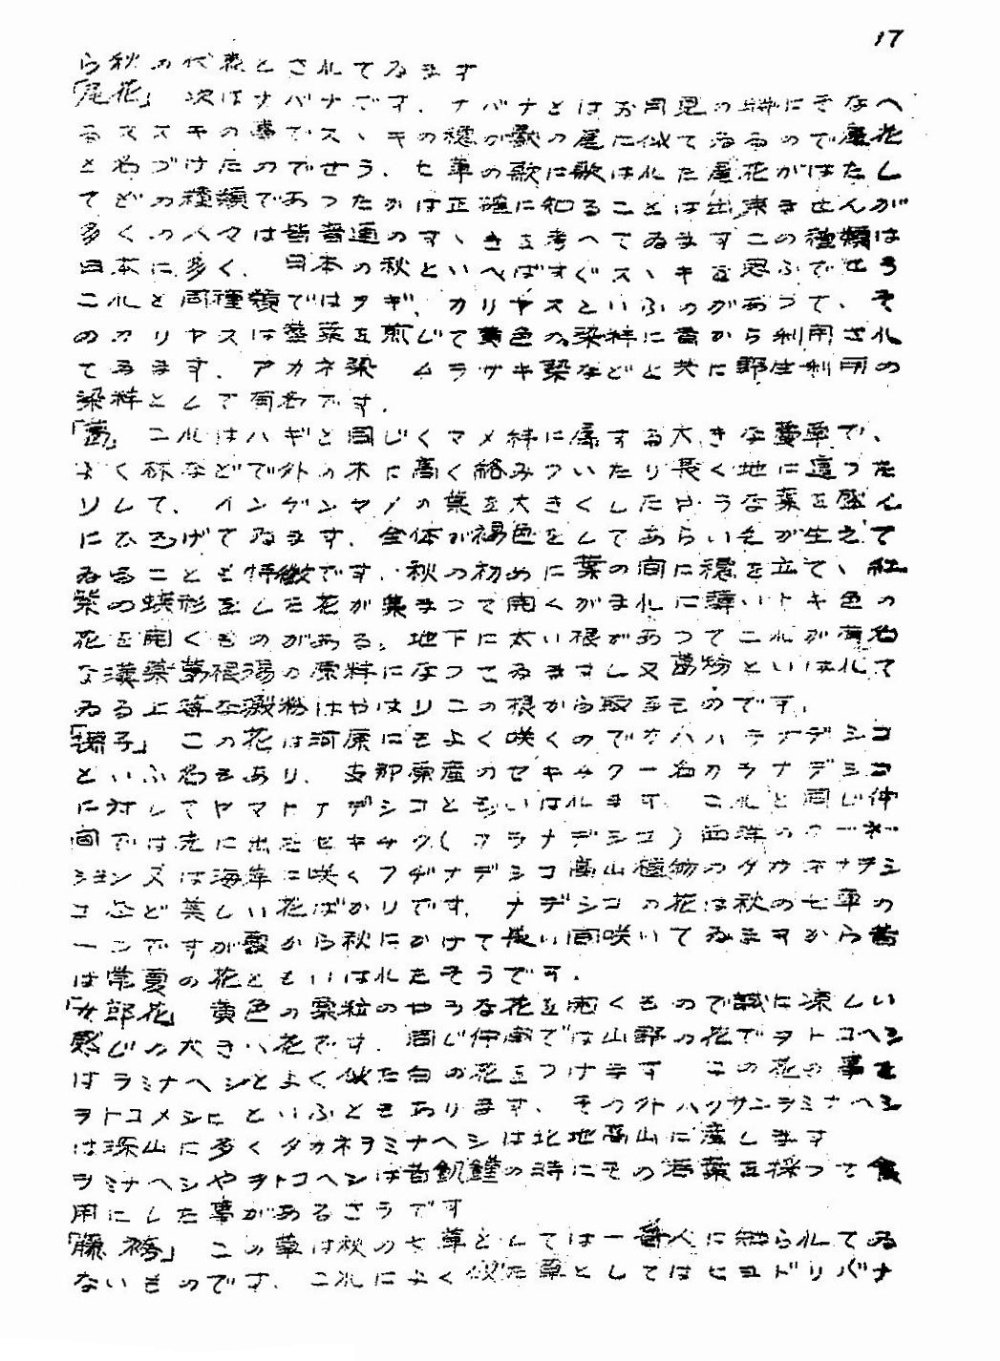 17
ら秋の代表とされてゐます
「尾花」 次はオバナです、オバナとはお月見の時にそなへ
るススキの事でスヽキの穂が獣の尾に似てゐるので尾花
と名づけたのでせう、七草の歌に歌はれた尾花がはたし
てどの種類であつたかは正確に知ることは出来ませんが
多くの人々は皆普通のすヽきを考へてゐますこの種類は
日本に多く、日本の秋といへばすぐスヽキを思ふでせう
これと同種類ではヲギ、カリヤスといふのがあつて、そ
のカリヤスは茎葉を煎じて黄色の染料に昔から利用され
てゐます、アカネ染 ムラサキ染などと共に野生利用の
染料として有名です、
「葛」 これはハギと同じくマメ科に属する大きな蔓草で、
よく林などで外の木に高く絡みついたり長く地に這つた
りして、インゲンマメの葉を大きくしたやうな葉を盛ん
にひろげてゐます、全体が褐色をしてあらい毛が生えて
ゐることも特徴です、秋の初めに葉の間に穂を立て、紅
紫の蝶形をした花が集まつて開くがまれに薄いトキ色の
花を開くものがある。地下に太い根があつてこれが有名
な漢薬葛根湯の原料になつてゐますし又葛粉といはれて
ゐる上等な澱粉はやはりこの根から取るものです、
「撫子」 この花は河原にもよく咲くのでカハラナデシコ
といふ名もあり、支那原産のセキチク一名カラナデシコ
に対してヤマトナデシコともいはれます、これと同じ仲
間では先に出たセキチク(カラナデシコ)西洋のカーネー
ション又は海岸に咲くフヂナデシコ高山植物のタカネナデシ
コなど美しい花ばかりです、ナデシコの花は秋の七草の
一つですが夏から秋にかけて長い間咲いてゐますから昔
は常夏の花ともいはれたそうです、
「女郎花」 黄色の粟粒のやうな花を開くもので誠に凉しい
感じの大きい花です、同じ仲間では山野の花でヲトコヘシ
はヲミナヘシとよく似た白の花をつけます この花の事を
ヲトコメシ といふともあります、その外ハクサンヲミナヘシ
は深山に多くタカネヲミナヘシは北地高山に産します
ヲミナヘシやヲトコヘシは昔飢饉の時にその若葉を採つて食
用にした事があるさうです
「藤袴」 この草は秋の七草としては一番人に知られてゐ
ないものです、これによく似た草としてはヒヨドリバナ